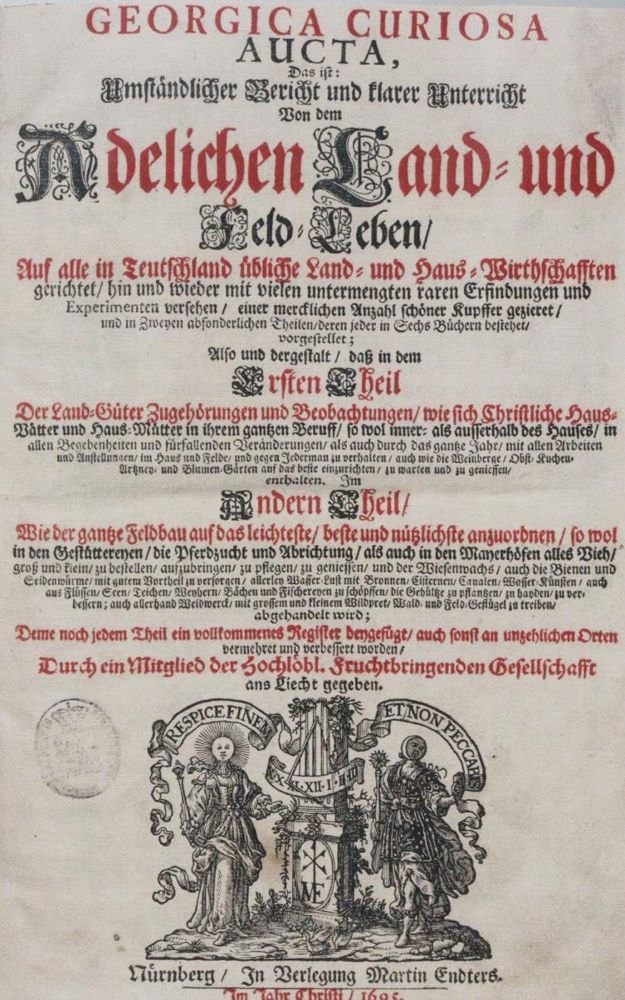 GEORGICA CURIOSA
AUCTA,
Das ist:
Umständlicher Bericht und klarer Unterricht
Von dem
Adelichen Land- und
Feld-Leben/
Auf alle in Teutschland übliche Land- und Haus-Wirthschafften
gerichtet/ hin und wieder mit vielen untermengten raren Erfindungen und
Experimenten versehen/ einer mercklichen Anzahl schöner Kupffer gezieret/
und in Zweyen absonderlichen Theilen/ deren jeder in Sechs Büchern bestehet/
vorgestellet;
Also und dergestalt/ daß in dem
Ersten Theil
Der Land-Güter Zugehörungen und Beobachtungen/ wie sich Christliche Haus-
Vätter und Haus-Mütter in ihrem gantzen Beruff/ so wol inner- als ausserhalb des Hauses/ in
allen Begebenheiten und fürfallenden Veränderungen/ als auch durch das gantze Jahr/ mit allen Arbeiten
und Anstellungen/ im Haus und Felde/ und gegen Jederman zu verhalten/ auch wie die Weinberge/ Obst- Kuchen-
Artzney- und Blumen-Gärten auf das beste einzurichten/ zu warten und zu geniessen/
enthalten. Im
Andern Theil/
Wie der gantze Feldbau auf das leichteste/ beste und nützlichste anzuordnen/ so wol
in den Gestüttereyen/ die Pferdzucht und Abrichtung/ als auch in den Mayerhöfen alles Vieh/
groß und klein/ zu bestellen/ aufzubringen/ zu pflegen/ zu geniessen/ und der Wiesenwachs/ auch die Bienen und
Seidenwürme/ mit gutem Vortheil zu versorgen/ allerley Wasser-Lust mit Bronnen/ Cisternen/ Canalen/ Wasser-Künsten/ auch
aus Flüssen/ Seen/ Teichen/ Weyhern/ Bächen und Fischereyen zu schöpffen/ die Gehültze zu pflantzen/ zu hayden/ zu ver-
bessern; auch allerhand Weidwerck/ mit grossem und kleinem Wildpret/ Wald- und Feld-Geflügel zu treiben/
abgehandelt wird;
Deme noch jedem Theil ein vollkommenes Register beygefügt/ auch sonst an unzehlichen Orten
vermehret und verbessert worden/
Durch ein Mitglied der Hochlöbl. Fruchtbringenden Gesellschafft
ans Liecht gegeben.
RESPICE FINEM
ET NON PECCABIS
X·XI·XII·I·II·III
ME
Nürnberg/ In Verlegung Martin Endters.
Im Jahr Christi/ 1695.